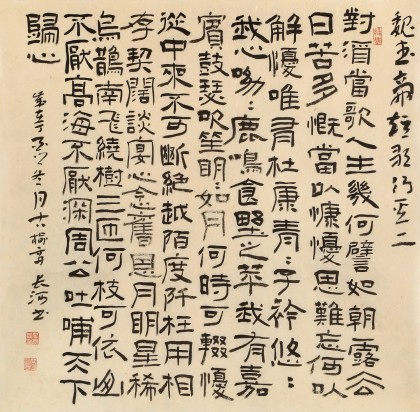 魏武帝短歌行之二
對酒當歌人生幾何譬如朝露去
日苦多慨當以慷憂思難忘何以
解憂唯有杜康青：子衿悠：
我心呦：鹿鳴食野之苹我有嘉
賓鼓瑟吹笙明：如月何時可輟憂
從中來不可斷絕越陌度阡枉用相
存契闊談宴心念舊恩月明星稀
烏鵲南飛繞樹三匝何枝可依山
不厭高海不厭深周公吐哺天下
歸心
冬月古榆長河書